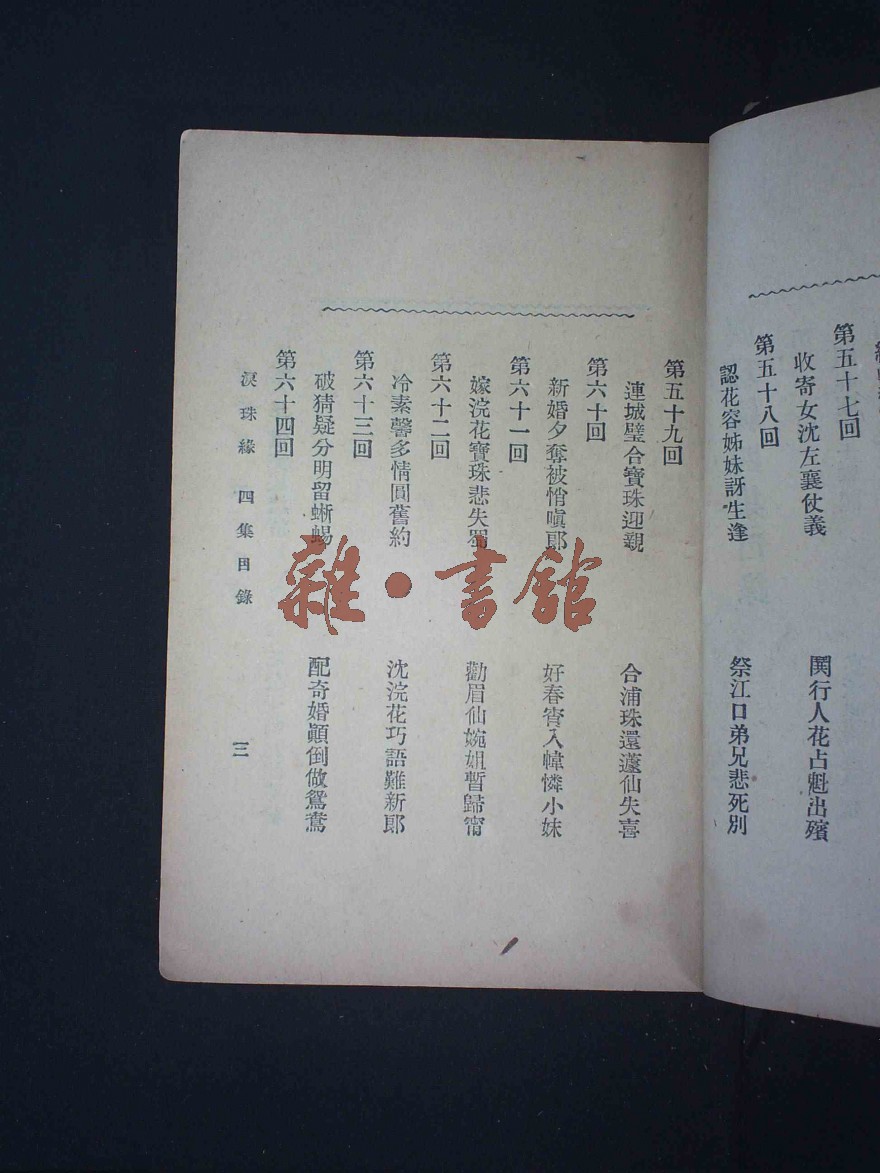 第五十七回
收寄女沈左襄仗義 閱行人花占魁出殯
第五十八回
認花容姊妹訝生逢 祭江口弟兄悲死別
第五十九回
連城璧合寶珠迎親 合浦珠還蘧仙失喜
第六十回
新婚夕奪被悄嗔郎 好春宵入幃憐小妹
第六十一回
嫁浣花寶珠悲失蜀 勸眉仙婉姐暫歸甯
第六十二回
冷素馨多情圓舊約 沈浣花巧語難新郎
第六十三回
破猜疑分明留蜥蜴 配奇婚顛倒做鴛鴦
第六十四回
淚珠緣 四集目錄 三
雜·書館